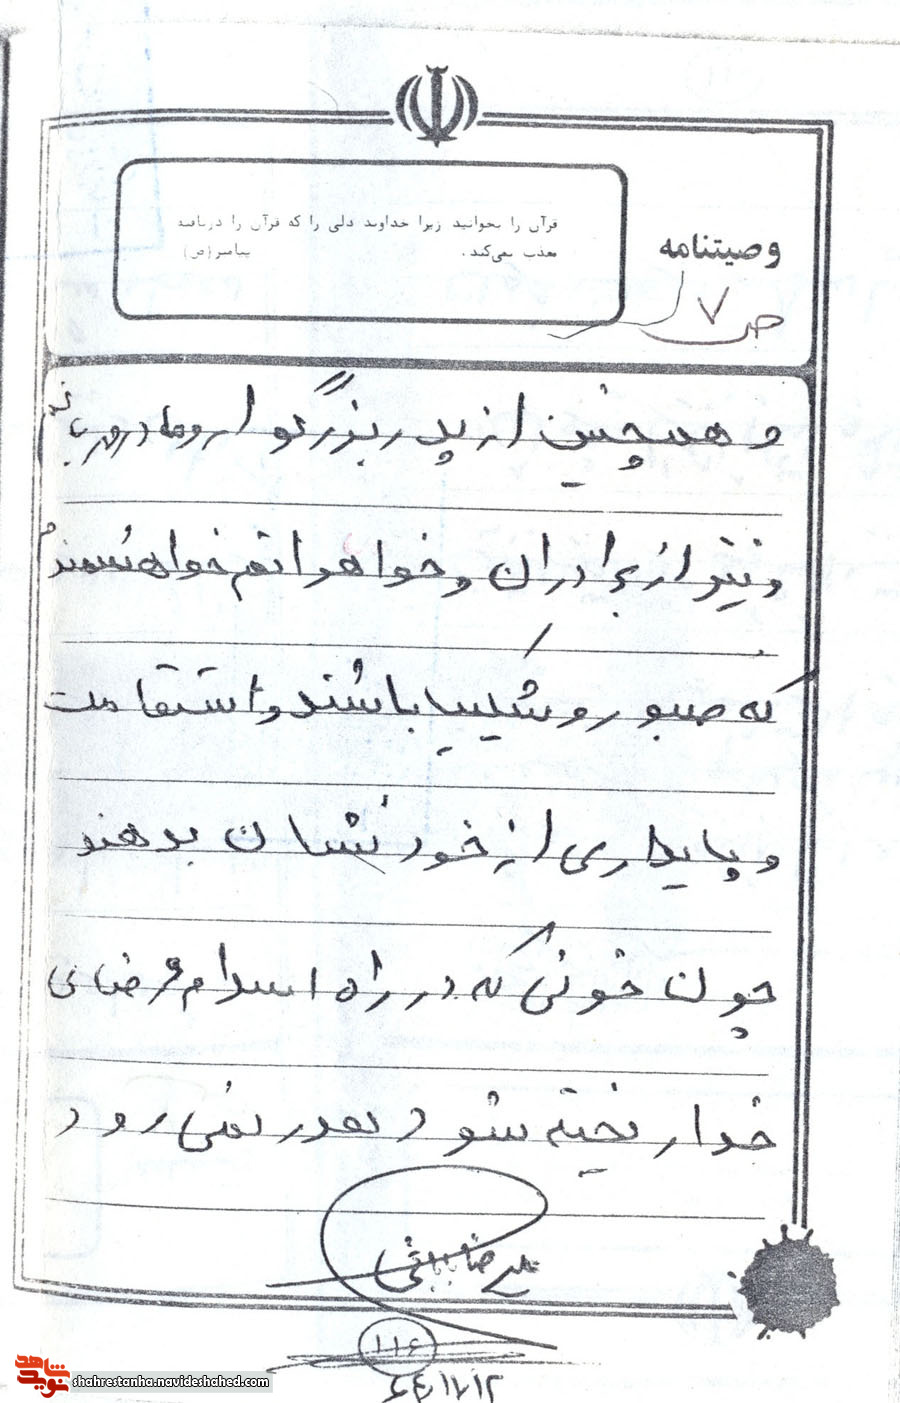 قرآن را بخوانید زیرا خداوند دلی را که قرآن را دریافته
معذب نمی‌کند. پیامبر (ص)
وصیتنامه
ص ۷
و همچنین از پدر بزرگوار و مادر
و نیز از برادران و خواهرانم خواهشمندم
که صبور و شکیبا باشند و استقامت
و پایداری از خود نشان بدهند
چون خونی که در راه اسلام و رضای
خدا ریخته شود هدر نمی رود
۱۱۶
۶۴/۱۱/۱۲
شاهد
نوید
shahrestanha.navideshahed.com